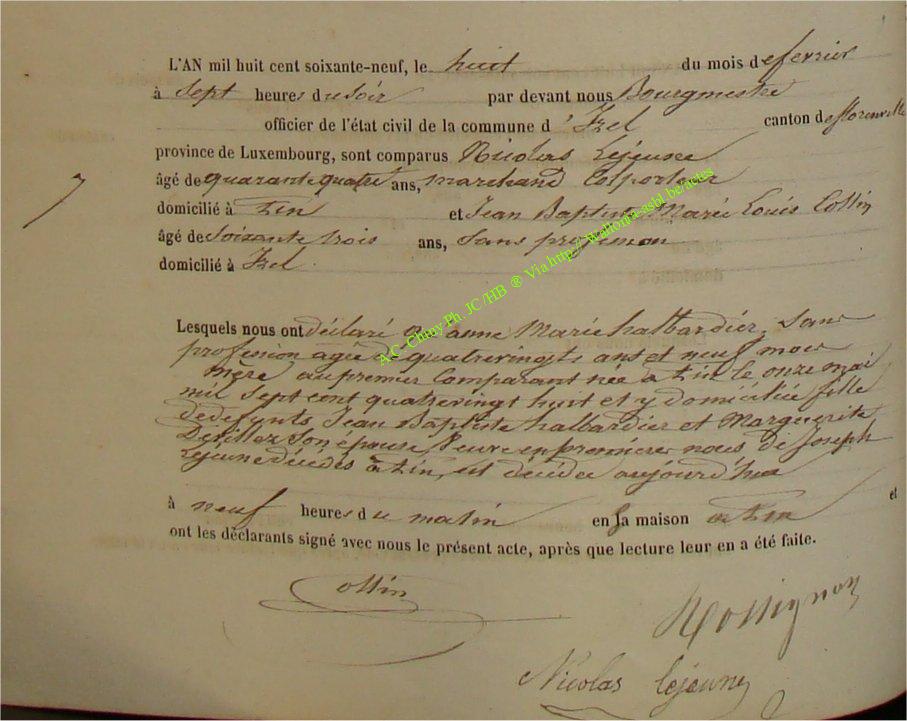 L'AN mil huit cent soixante-neuf, le huit du mois de fevrier
à sept heures du soir par devant nous Bourgmestre
officier de l'état civil de la commune d'Izel canton de florenville
province de Luxembourg, sont comparus Nicolas Lejeune
âgé de quarante quatre ans, marchand Colporteur
domicilié à tin et Jean Baptiste Marie Louis Collin
7
âgé de soixante trois ans, sans profession
domicilié à Izel.
Lesquels nous ont déclaré que anne Marie halbardier, sans
profession agée de quatrevingts ans et neuf mois
mère au premier Comparant née à tin le onze mai
mil Sept cent quatrevingt huit et y domiciliée fille
de defunts Jean Baptiste halbardier et Marguerite
Devillez son epouse, Veuve en première noces de Joseph
Lejeune décédés à tin, est décédée aujourd'hui
à neuf heures du matin en sa maison à tin et
ont les déclarants signé avec nous le présent acte, après que lecture leur en a été faite.
Collin
Rossignon
Nicolas lejeune
A.C- Chiny Ph. JC /HB ® Via http://wallonia-asbl.be/actes